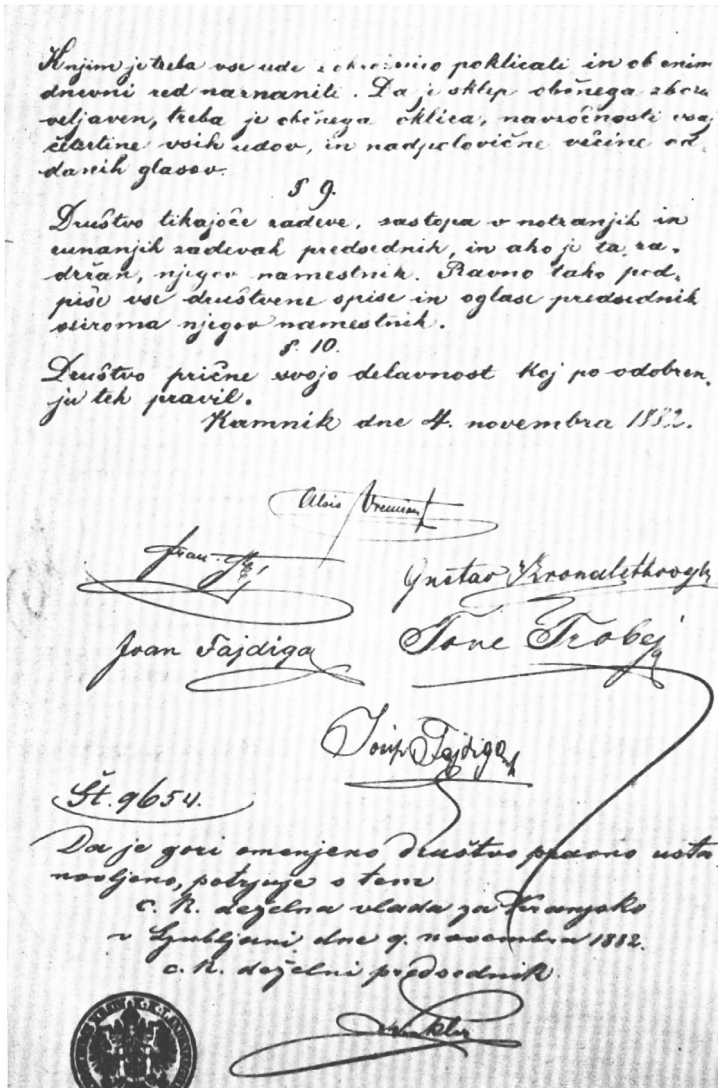 K njim je treba vse ude z okrožnico poklicati in ob enim
dnevni red naznaniti. Da je sklep občnega zbora
veljaven, treba je občnega oklica, navzočnosti vsaj
četertine vsih udov, in nadpolovične večine od-
danih glasov.
§ 9.
Društvo tikajoče zadeve, zastopa v notranjih in
zunanjih zadevah predsednik, in ako je ta za-
držan, njegov namestnik. Ravno tako pod-
piše vse društvene spise in oglase predsednik
oziroma njegov namestnik.
§. 10.
Društvo prične svojo delavnost koj po odobren-
ju teh pravil.
Kamnik dne 4. novembra 1882.
Alois
Fran
Gustav
Joan Fajdiga
Tone Trobej
Josip Fajdiga
Št. 9654.
Da je gori omenjeno društvo pravno usta-
novljeno, potrjuje s tem
c. k. deželna vlada za Kranjsko
v Ljubljani dne 9. novembra 1882.
c. k. deželni predsednik